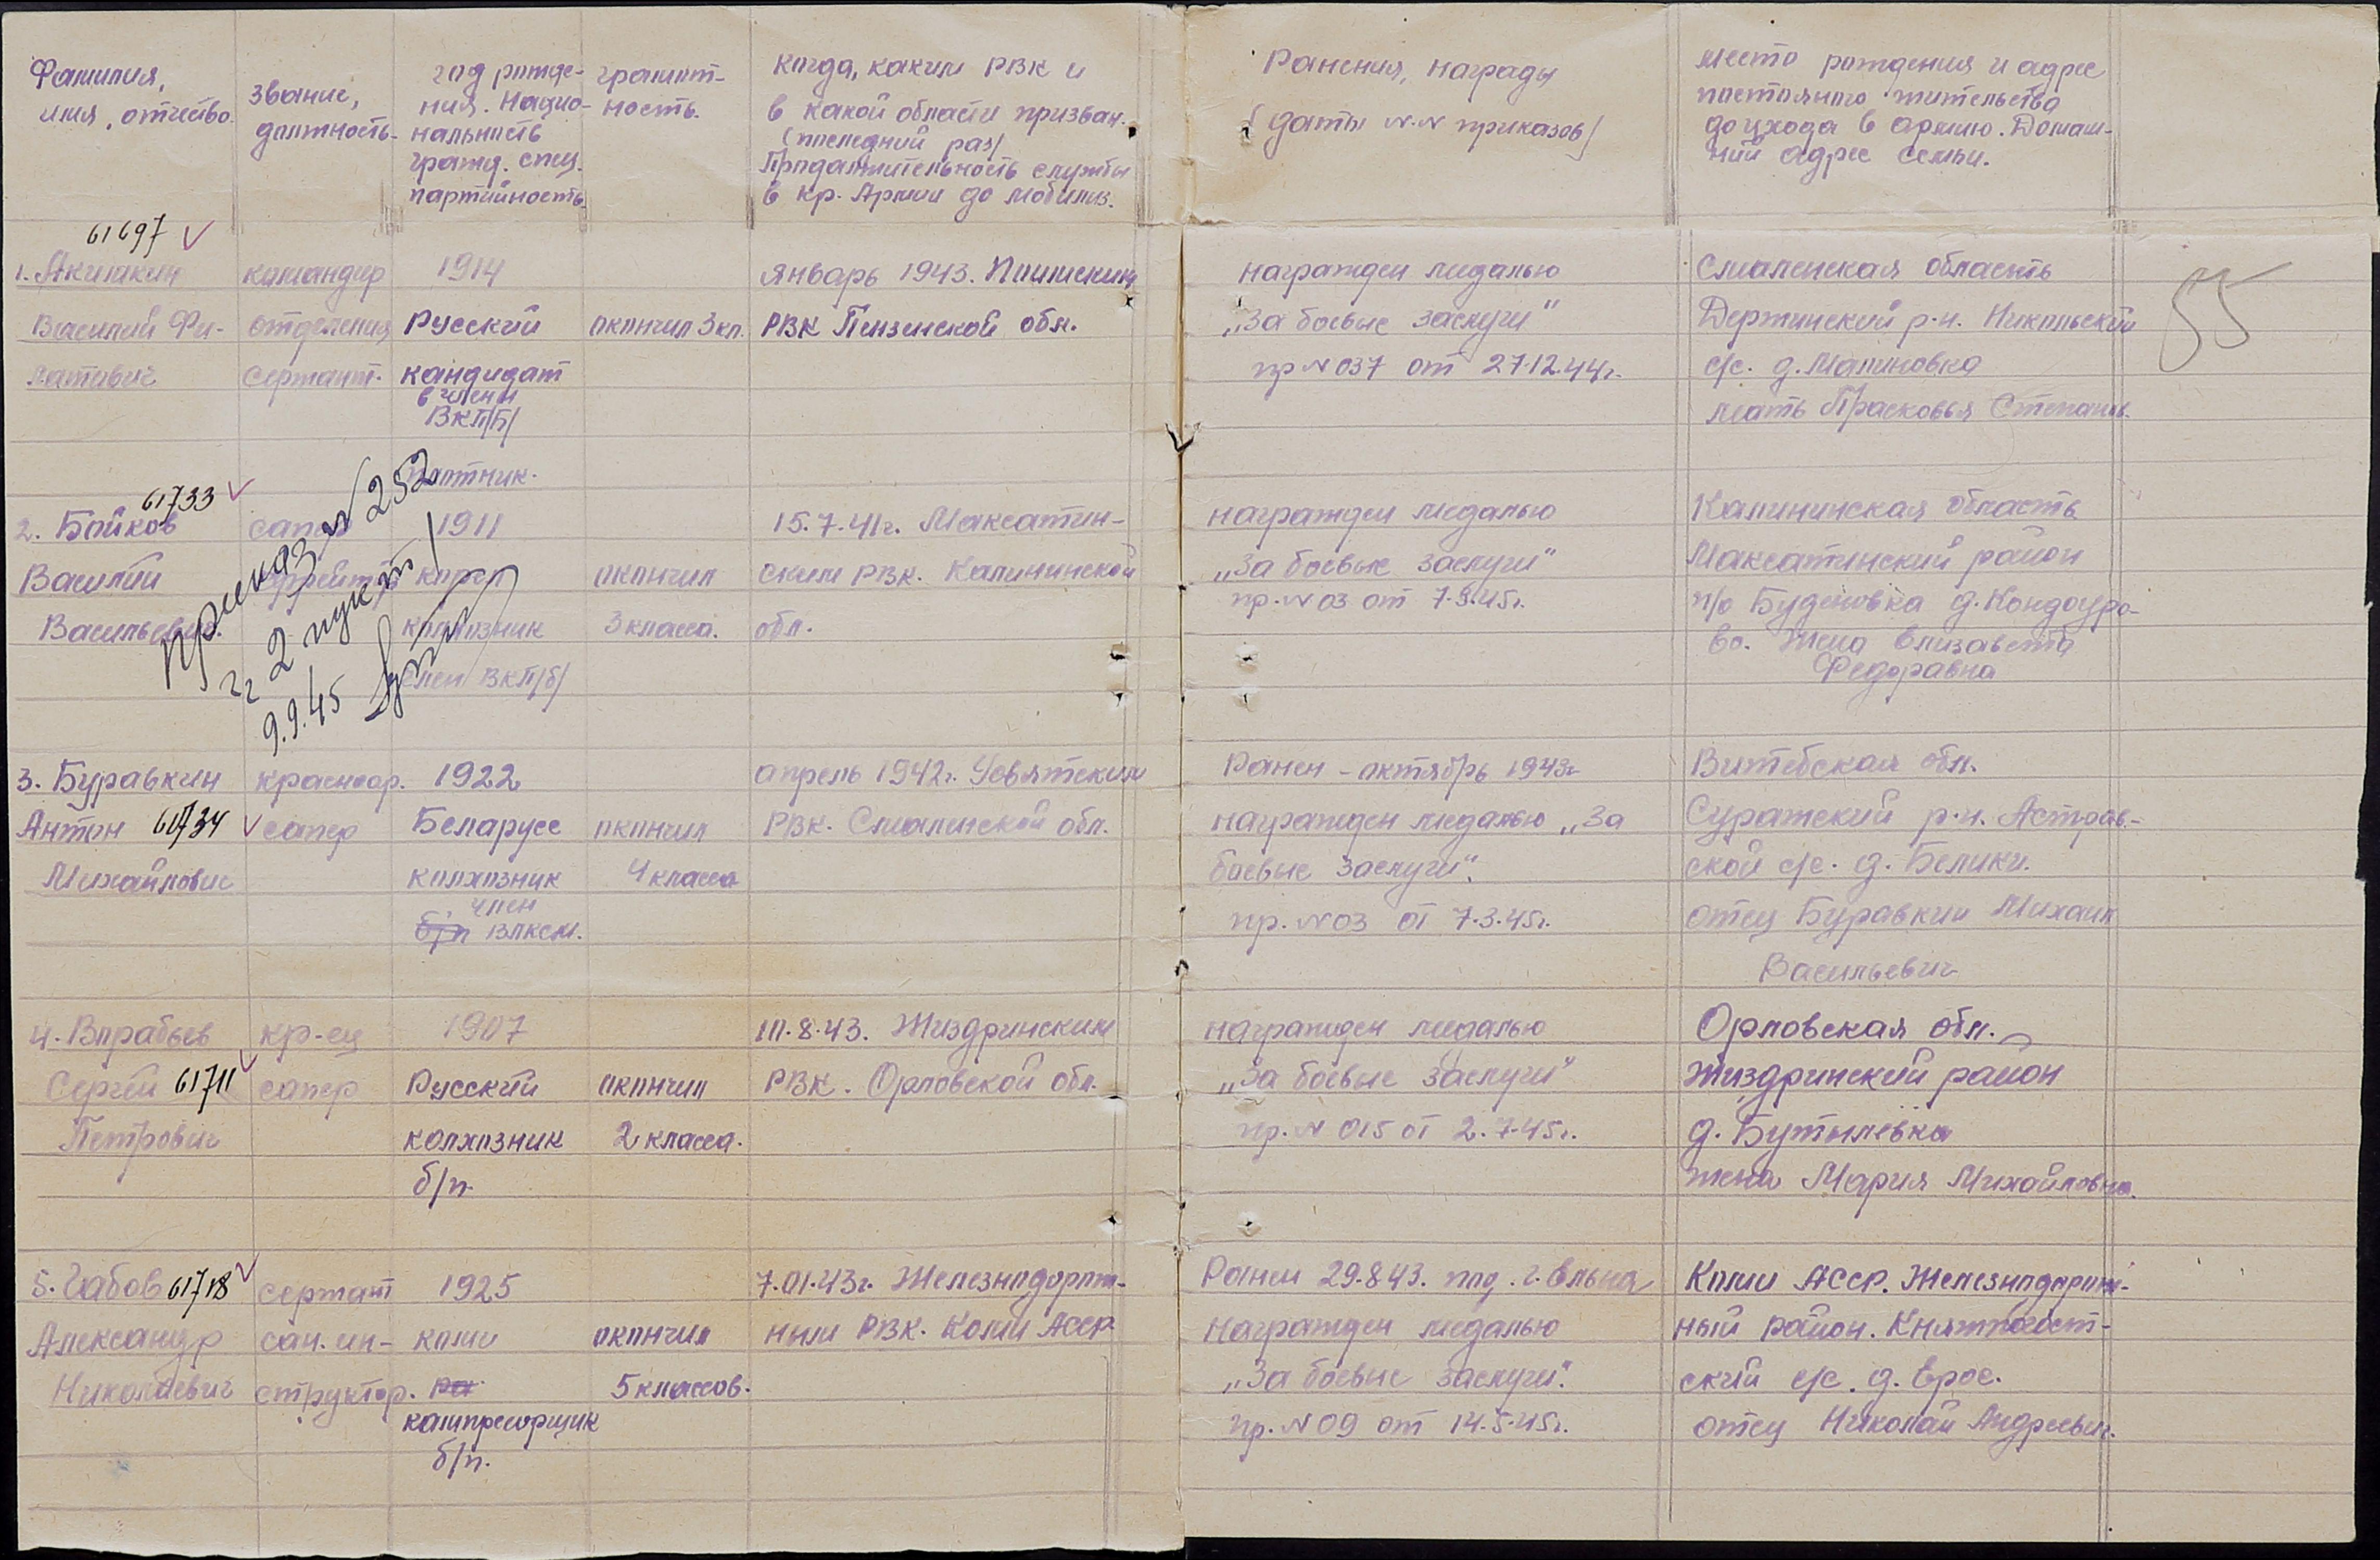 Фамилия,
имя, отчество.
звание,
должность.
год рожде-
ния. Нацио-
нальность
гражд. спец.
партийность.
грамот-
ность.
когда, каким РВК и
в какой области призван.
(последний раз)
Продолжительность службы
в Кр. Армии до мобилиз.
Ранения, награды
(даты N.N приказов)
место рождения и адрес
постоянного жительства
до ухода в армию. Домаш-
ний адрес семьи.
55
61697
1. Акимкин
Василий Фи-
латович
командир
отделения
сержант.
1914
Русский
кандидат
в члены
ВКП/Б/
плотник.
окончил 3 кл.
январь 1943.
РВК Пензенской обл.
награжден медалью
„За боевые заслуги"
пр N 037 от 27.12.44г.
Смоленская область
р-н. Никольский
с/с. д. Малиновка
мать Прасковья Степанов.
61733
2. Бойков
Василий
Васильевич.
сапер
1911
карел
колхозник
член ВКП/б/
окончил
3 класса.
15.7.41г. Максатин-
ским РВК. Калининской
обл.
награжден медалью
„За боевые заслуги"
пр. N 03 от 7.3.45г.
Калининская область
Максатинский район
п/о Буденовка д. Кондоуро-
во. Жена Елизавета
Федоравна
Приказ N 252
2 пункт
9.9.45
3. Буравкин
Антон 61734
Михайлович
красноар.
сапер
1922
Беларусс
колхозник
член
б/п ВЛКСМ.
окончил
4 класса
апрель 1942г. Усвятским
РВК. Смоленской обл.
Ранен - октябрь 1943г
награжден медалью „За
боевые заслуги".
пр. N 03 от 7.3.45г.
Витебская обл.
Суражский р-н. Астрав-
ской с/с. д. Белики.
отец Буравкин Михаил
Васильевич
4. Воробьев
Сергей 61711
Петрович
кр-ец
сапер
1907
Русский
колхозник
б/п.
окончил
2 класса.
10.8.43. Жиздринским
РВК. Орловской обл.
награжден медалью
„За боевые заслуги"
пр. N 015 от 2.7.45г.
Орловская обл.
Жиздринский район
д. Бутылевка
жена Мария Михайловна.
5. Габов 61718
Александр
Николаевич
сержант
сан. ин-
структор.
1925
коми
ра
компресорщик
б/п.
окончил
5 классов.
7.01.43г. Железнодорож-
ным РВК. Коми АССР
Ранен 29.8.43. под. г. Ельня
награжден медалью
„За боевые заслуги".
пр. N 09 от 14.5.45г.
Коми АССР. Железнодорож-
ный район. Княжпогост-
ский с/с. д. Ерос.
отец Николай Андреевич.